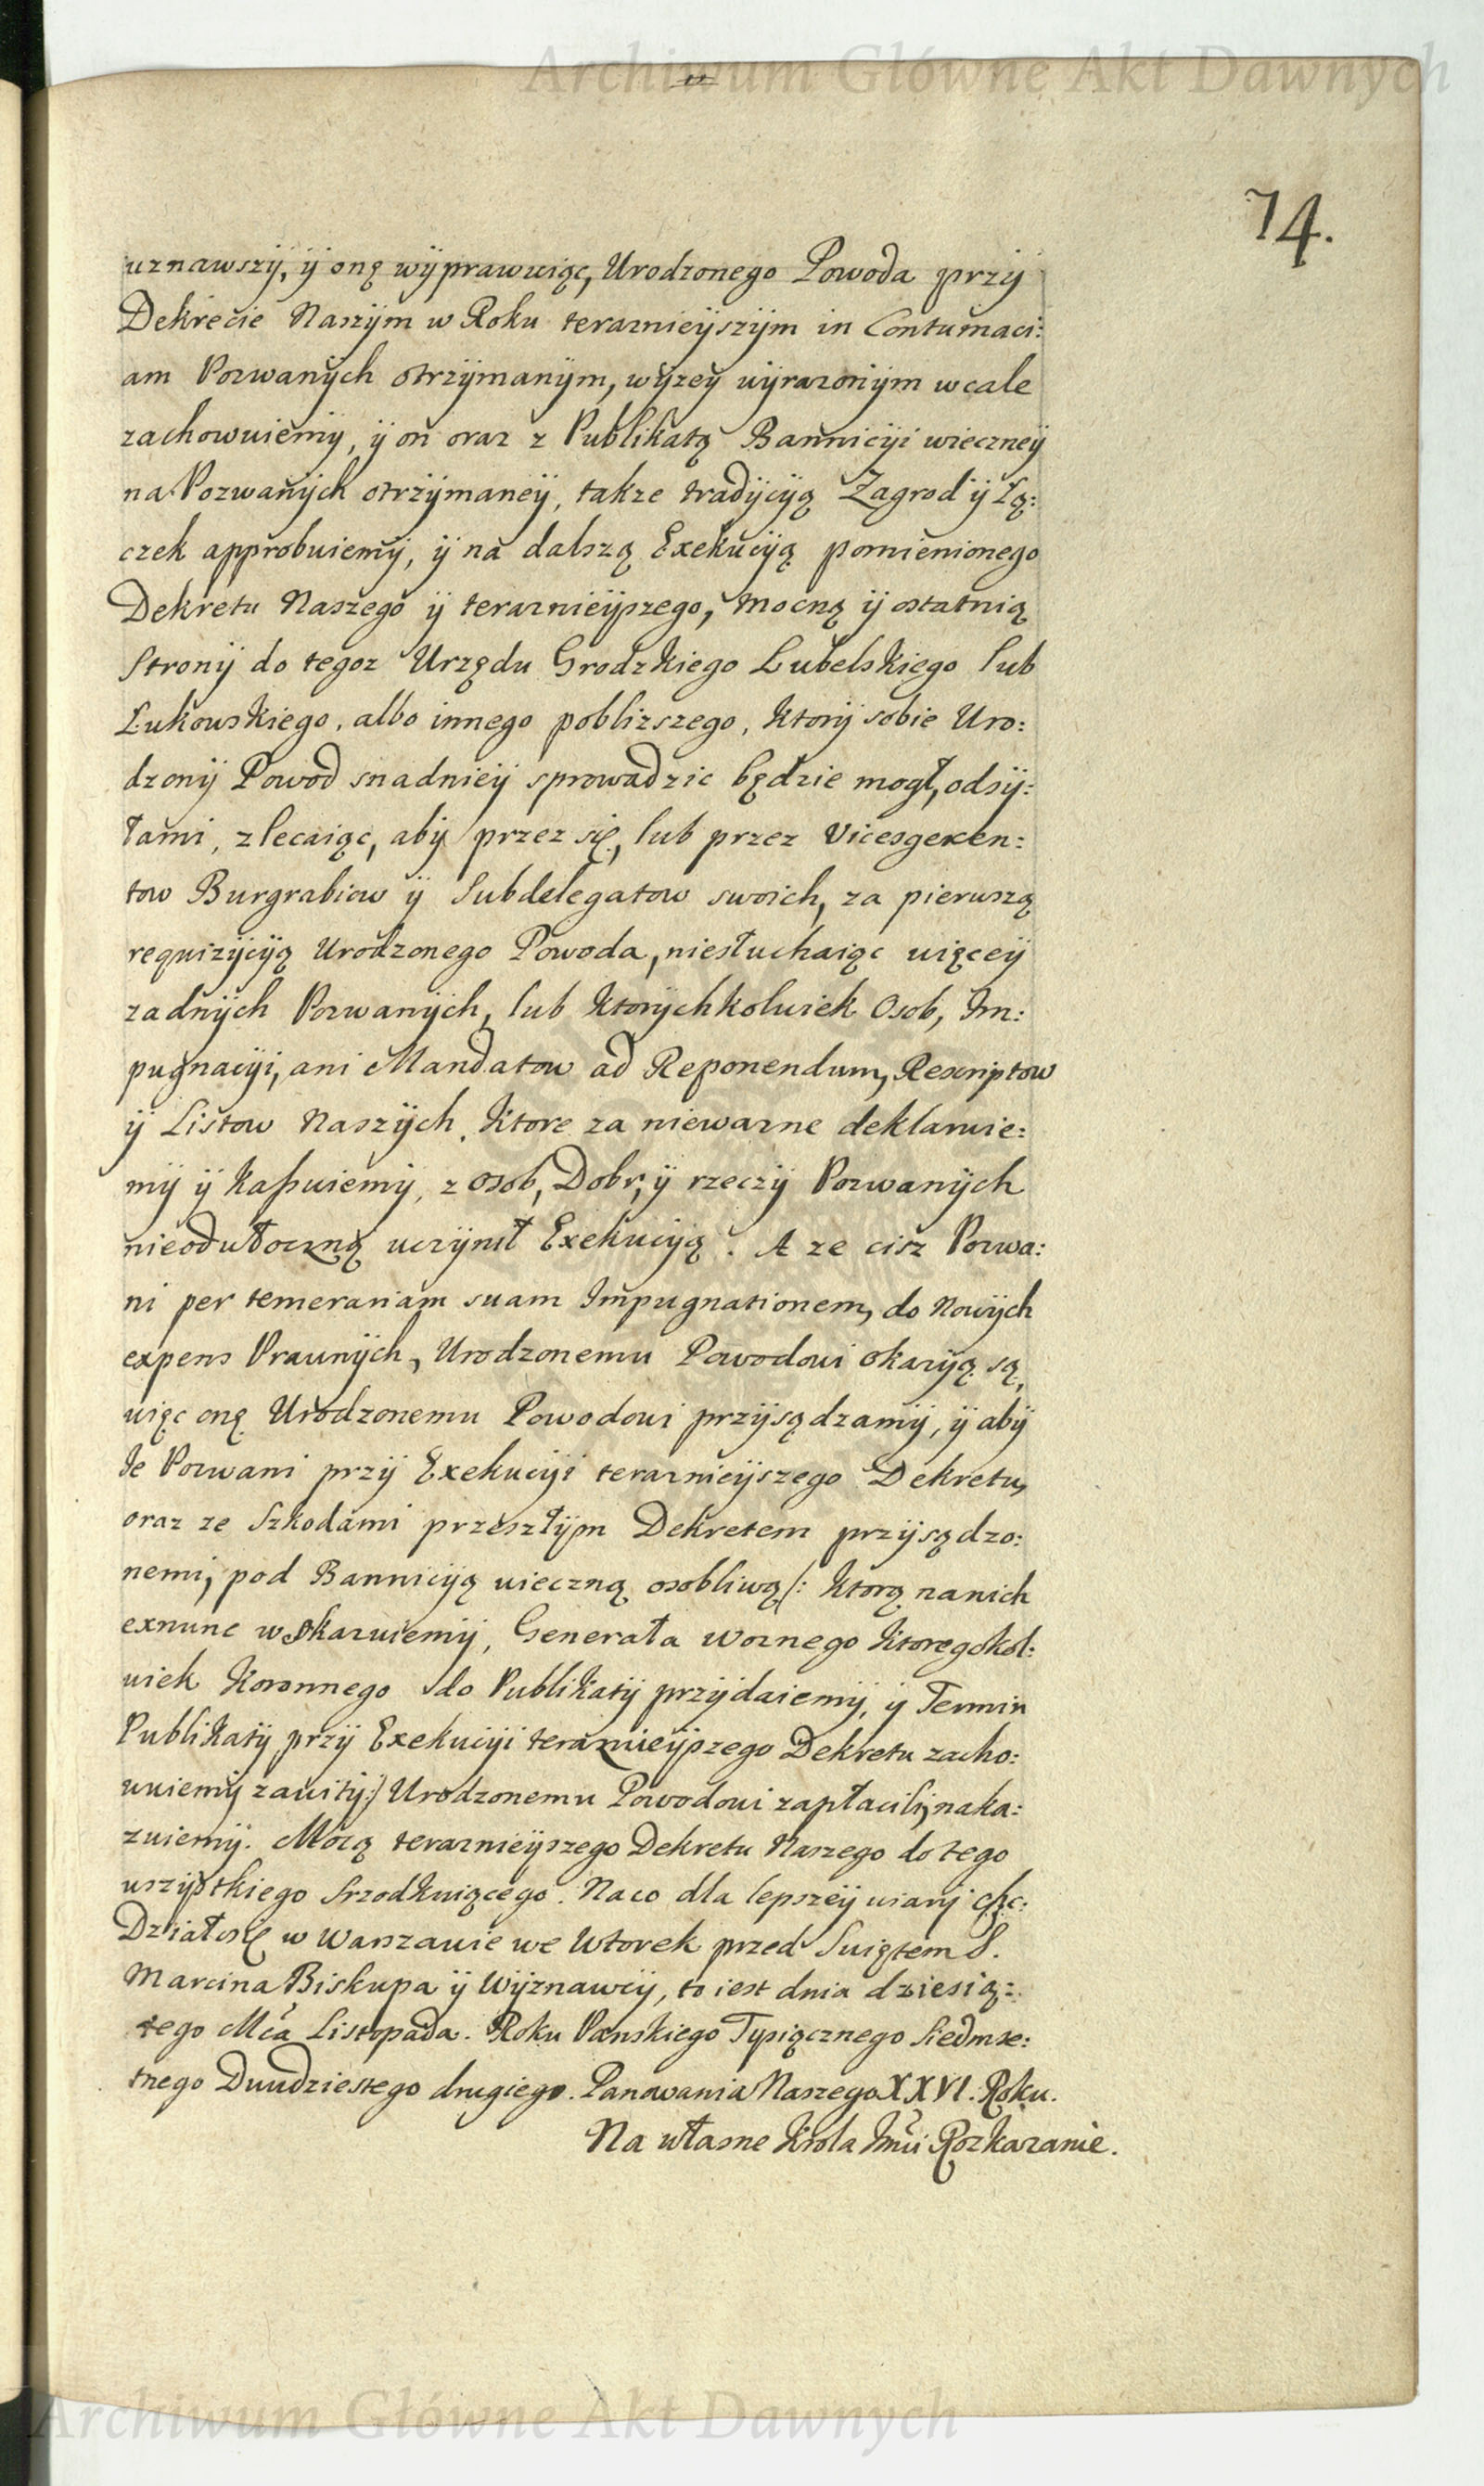 Archiwum Główne Akt Dawnych
74.
uznawszÿ, ÿ onę wÿprawuiąc, Urodzonego Powoda przÿ
Dekrecie Naszÿm w Roku terazniejszÿm in Contumaci:
am Pozwanÿch otrzÿmanÿm, wÿzeÿ wÿrazonÿm wcale
zachowuiemÿ, ÿ on oraz z Publikatą Bannicÿi wieczneÿ
na Pozwanÿch otrzÿmaneÿ, takze tradÿcÿą Zagrod ÿ Łą:
czek approbuiemÿ, ÿ na dalszą Exekucÿą pomienionego
Dekretu Naszego ÿ teraznieÿszego, mocną ÿ ostatnią
Stronÿ do tegoz Urzędu Grodzkiego Lubelskiego lub
Łukowskiego, albo innego poblizszego, Ktorÿ sobie Uro:
dzonÿ Powod snadnieÿ sprowadzic będzie mogł, odsÿ:
łami, zlecaiąc, abÿ przez się, lub przez Vicesgeren:
tow Burgrabiow ÿ Subdelegatow swoich, za pierwszą
requizÿcÿą Urodzonego Powoda, niesłuchaiąc więceÿ
zadnÿch Pozwanÿch, lub Ktorÿchkolwiek Osob, Im:
pugnacÿi, ani Mandatow ad Reponendum, Rescriptow
ÿ Listow Naszÿch, Ktore za niewazne deklaruie:
mÿ ÿ kaßuiemÿ, z Osob, Dobr, ÿ rzeczÿ Pozwanÿch
nieodwłoczną uczÿnił Exekucÿą. A ze cisz Pozwa:
ni per temerariam suam Impugnationem, do Nowÿch
expens Prawnÿch, Urodzonemu Powodowi okazÿą są,
więc onę Urodzonemu Powodowi przÿsądzamÿ, ÿ abÿ
Je Pozwani przÿ Exekucÿi teraznieÿszego Dekretu,
oraz ze Szkodami przeszłÿm Dekretem przÿsądzo:
nemi, pod Bannicÿą wieczną osobliwą /: Ktorą nanich
exnunc wskazuiemÿ, Generała Woznego Ktoregokol:
wiek Koronnego do Publikatÿ przÿdaiemÿ, ÿ Termin
Publikatÿ przÿ Exekucÿi teraznieÿszego Dekretu zacho:
wuiemÿ zawitÿ:/ Urodzonemu Powodowi zapłacili, naka:
zuiemÿ. Mocą teraznieÿszego Dekretu Naszego do tego
wszÿstkiego Srzodkuiącego. Naco dla lepszeÿ wiarÿ &c:
Działosię w Warszawie we Wtorek przed Swiętem S.
Marcina Biskupa ÿ Wÿznawcÿ, to iest dnia dziesią:
tego Mca Listopada. Roku Panskiego Tysiącznego Siedmse:
tnego Dwudziestego drugiego. Panowania Naszego XXVI. Roku.
Na własne Krola Jmci Rozkazanie.
Archiwum Główne Akt Dawnych